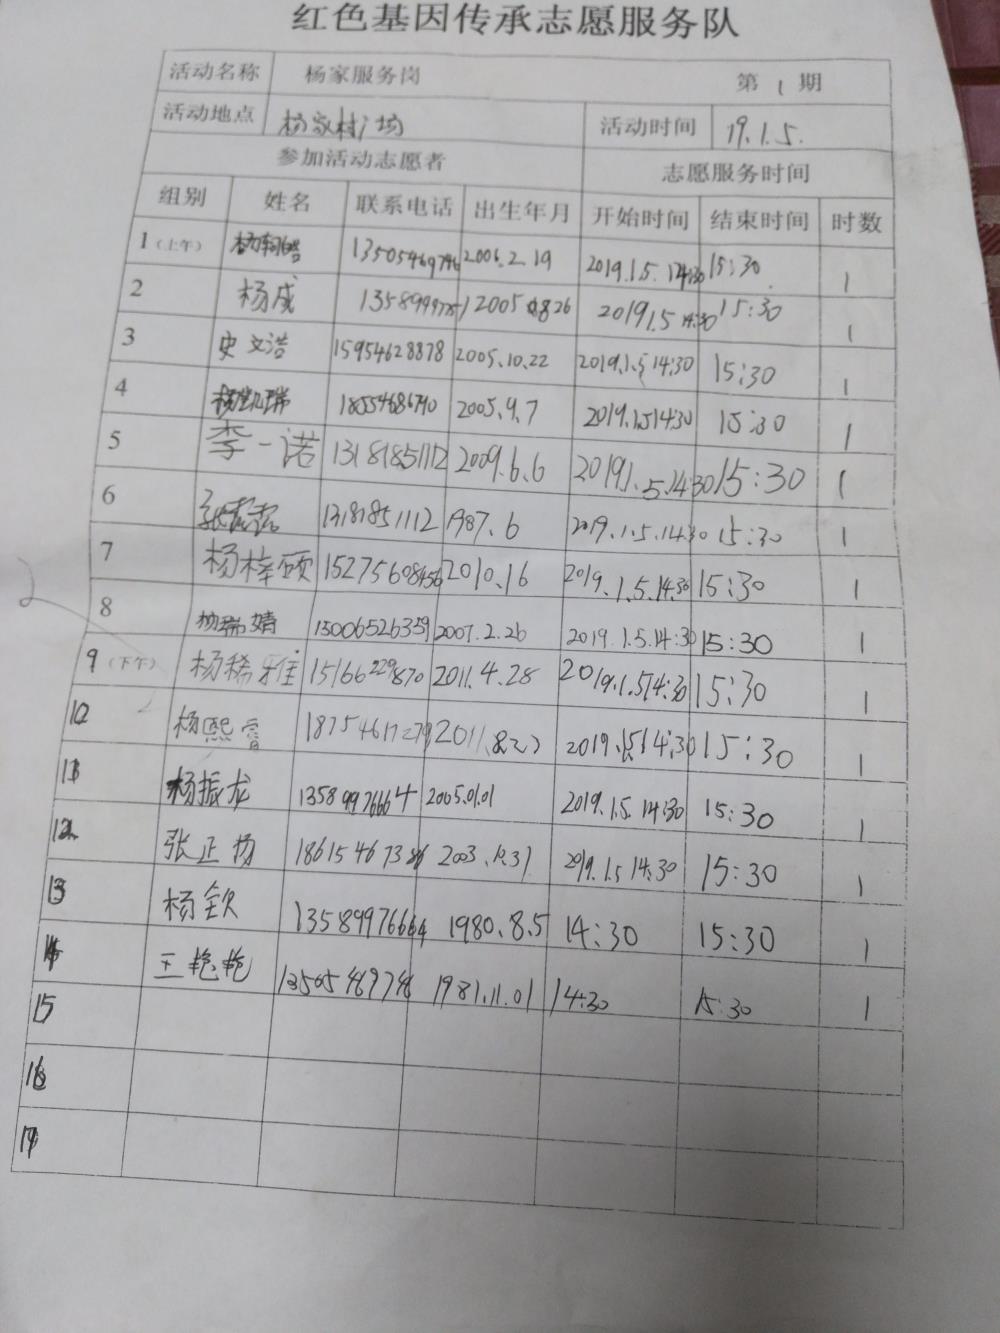 红色基因传承志愿服务队
活动名称 杨家服务岗 第 1 期
活动地点 杨家村广场 活动时间 19.1.5.
参加活动志愿者 志愿服务时间
组别 姓名 联系电话 出生年月 开始时间 结束时间 时数
1（上午） 2006.2.19 2019.1.5. 14:30 15:30 1
2 杨成 2019.1.5 14:30 15:30 1
3 史文浩 15954628878 2005.10.22 2019.1.5 14:30 15:30 1
4 杨凯瑞 18554686790 2005.9.7 2019.1.5 14:30 15:30 1
5 李一诺 13181851112 2009.6.6 2019.1.5.14:30 15:30 1
6 13181851112 1987.6 2019.1.5.14:30 15:30 1
7 杨梓硕 15275608456 2010.16 2019.1.5.14:30 15:30 1
8 杨瑞婧 13006526359 2007.2.26 2019.1.5.14:30 15:30 1
9（下午） 杨稀雅 15166229870 2011.4.28 2019.1.5 14:30 15:30 1
10 杨熙 2019.1.5 14:30 15:30 1
11 杨振龙 13589976664 2005.01.01 2019.1.5. 14:30 15:30 1
12 张正扬 2019.1.5 14:30 15:30 1
13 杨钦 13589976664 1980.8.5 14:30 15:30 1
14 王艳艳 1981.11.01 14:30 15:30 1
15
16
17